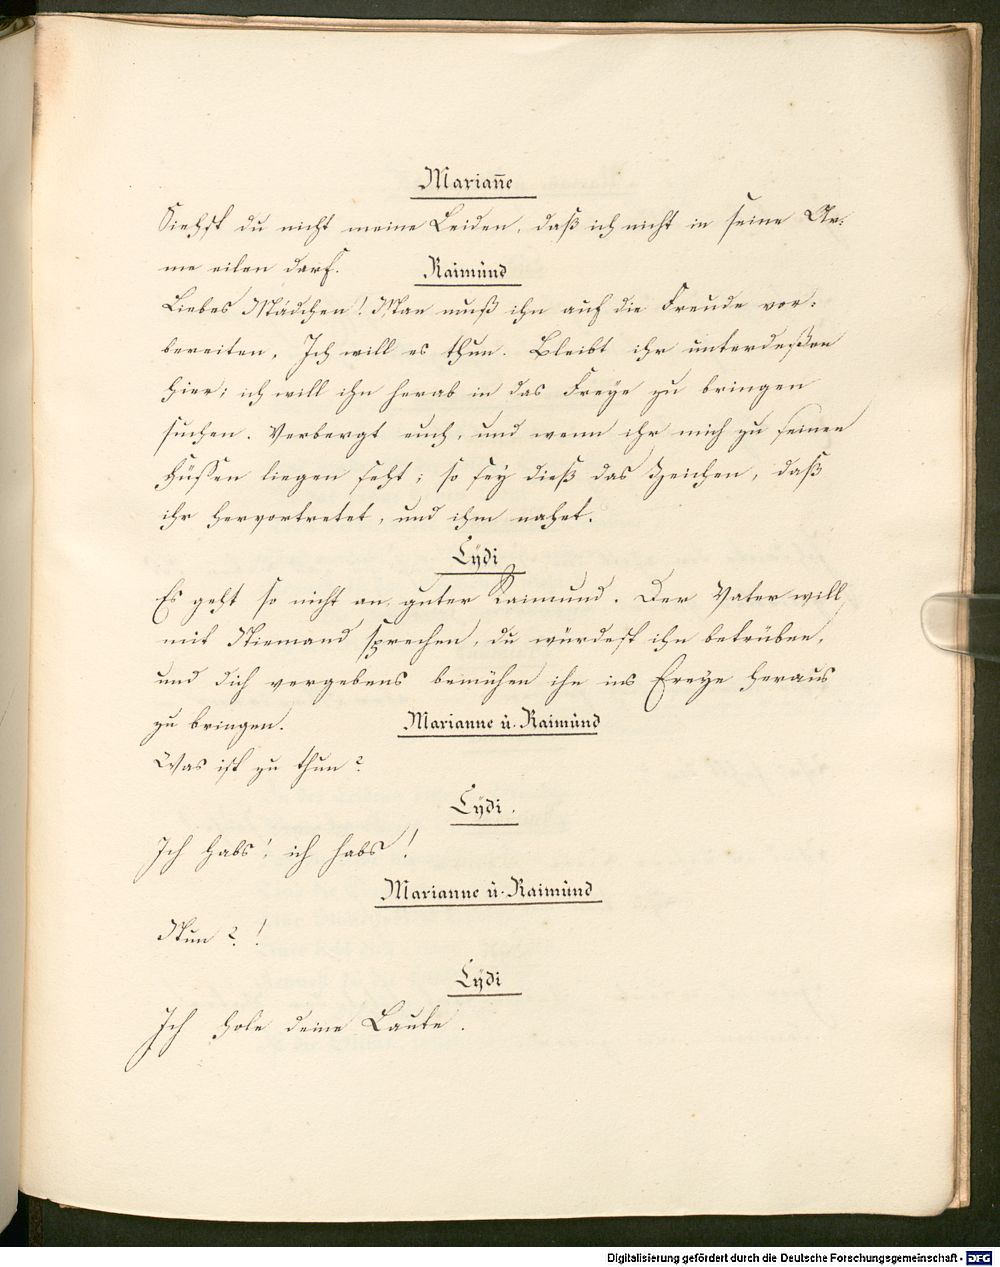 Marian̄e
Siehst du nicht meine Leiden, daß ich nicht in seine Ar-
me eilen darf.
Raimund
Liebes Mädchen! Man muß ihn auf die Freude vor-
bereiten. Ich will es thun. Bleibt ihr unterdeßen
hier; ich will ihn herab in das Freye zu bringen
suchen. Verbergt euch, und wenn ihr mich zu seinen
Füßen liegen seht; so sey dieß das Zeichen, daß
ihr hervortretet, und ihm nahet.
Lÿdi
Es geht so nicht an, guter Raimund. Der Vater will
mit Niemand sprechen, du würdest ihn betrüben,
und dich vergebens bemühen ihn ins Freye heraus
zu bringen.
Marianne u. Raimund
Was ist zu thun?
Lÿdi.
Ich habs! ich habs!
Marianne u. Raimund
Nun?!
Lÿdi
Ich hole deine Laute.
Digitalisierung gefördert durch die Deutsche Forschungsgemeinschaft - DFG